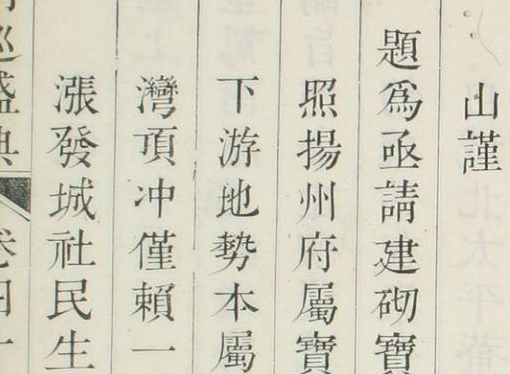 山謹
題為亟請建砌寶
照揚州府屬寶
下游地勢本屬
灣頂冲僅賴一
漲發城社民生
巡盛典